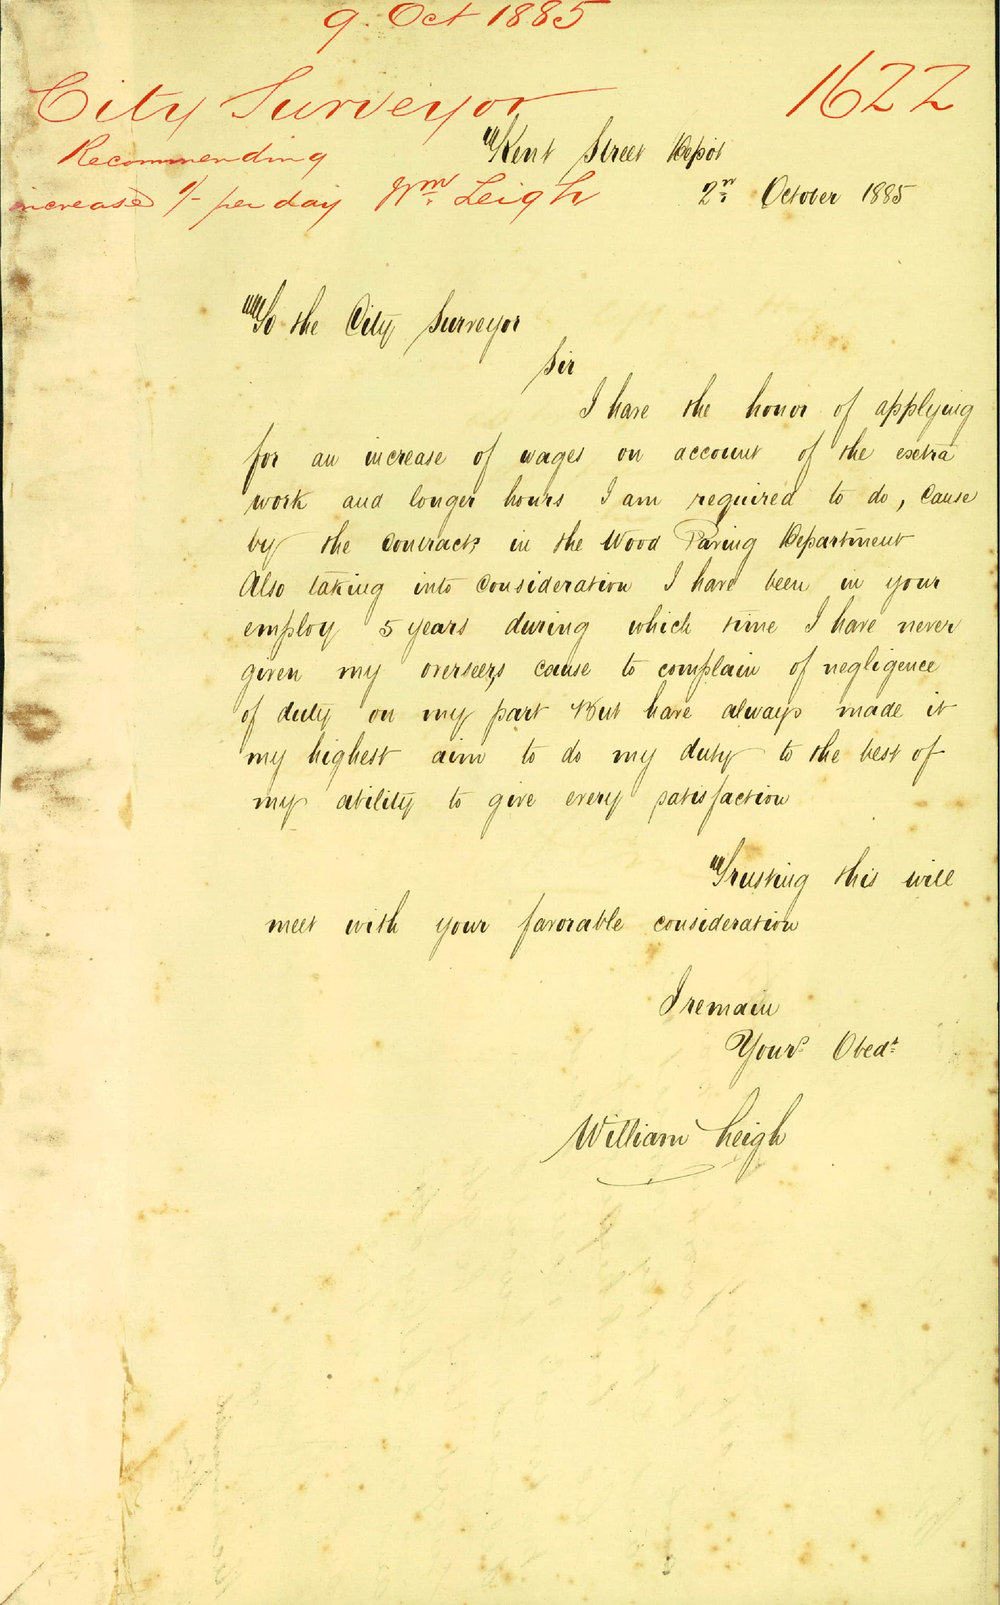 9. Oct 1885
City Surveyor
1622
Recommending
increase 1/- per day Wm. Leigh
Kent Street Depôt
2n. October 1885
To the City Surveyor
Sir
I have the honor of applying
for an increase of wages on account of the extra
work and longer hours I am required to do, Cause
by the contracts in the Wood Paving Department
Also taking into consideration I have been in your
employ 5 years during which time I have never
given my overseers cause to complain of negligence
of duty on my part But have always made it
my highest aim to do my duty to the best of
my ability to give every satisfaction
Trusting this will
meet with your favorable consideration
I remain
Yours Obedt.
William Leigh